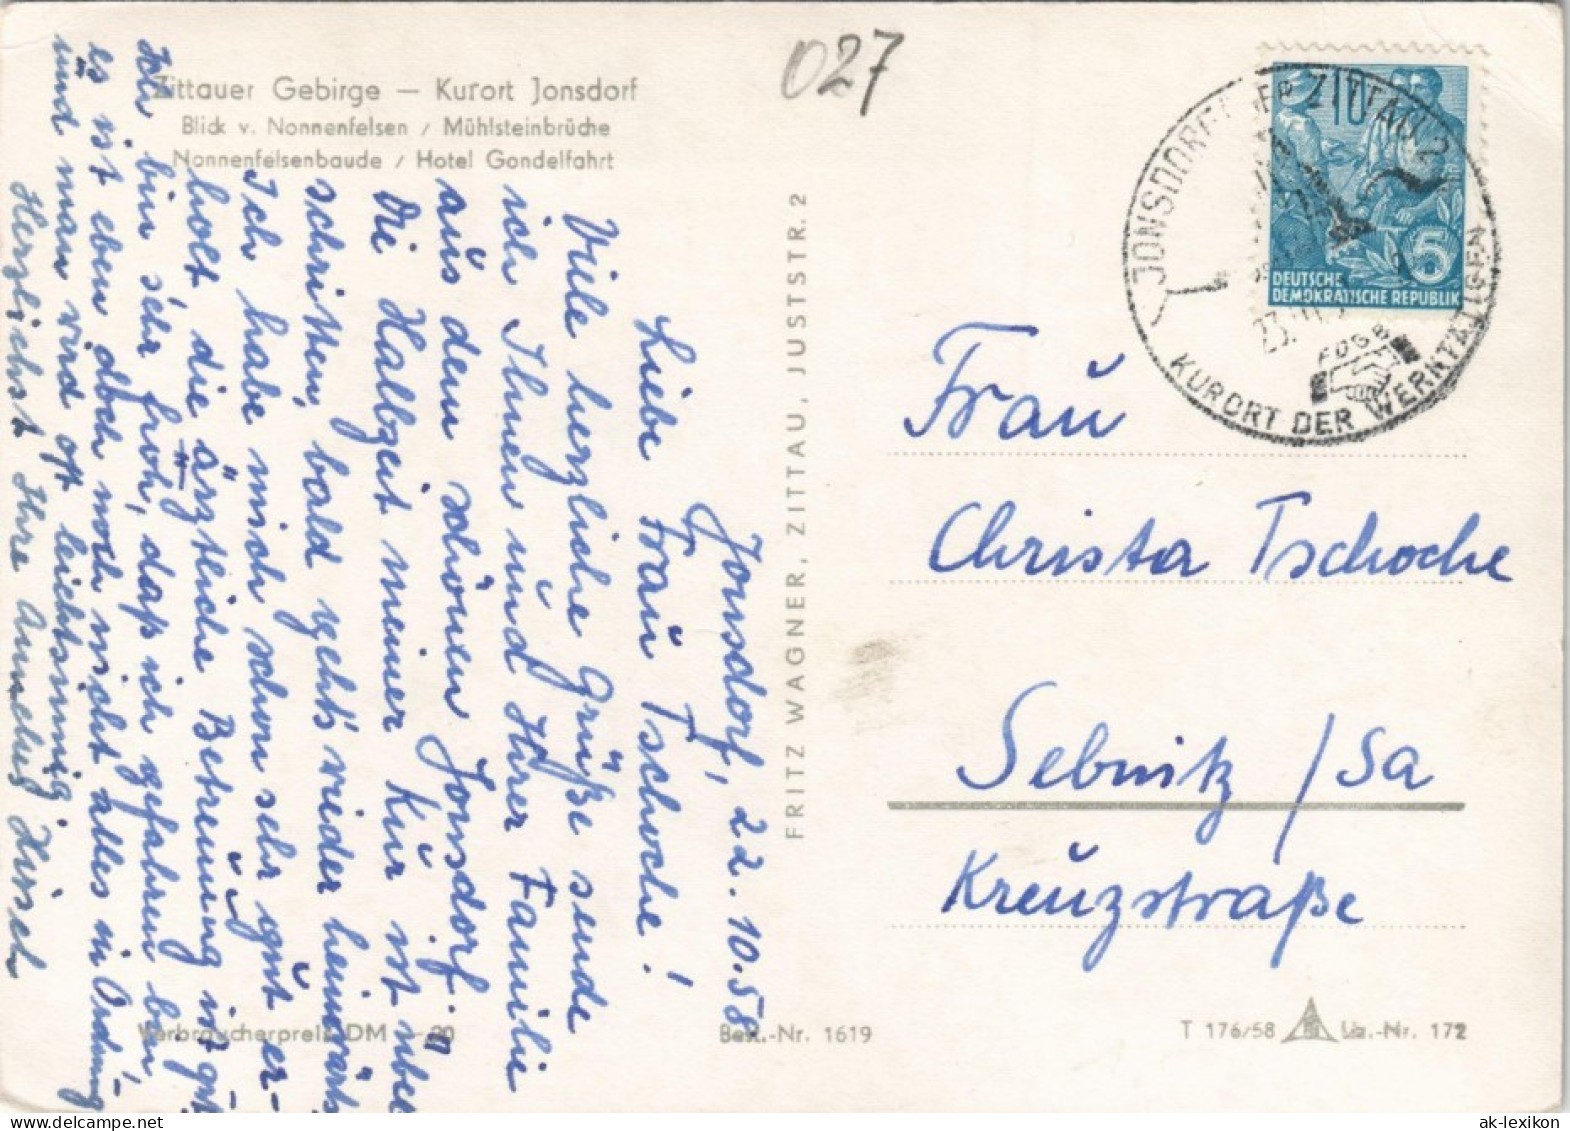 027
Zittauer Gebirge — Kurort Jonsdorf
Blick v. Nonnenfelsen / Mühlsteinbrüche
Nonnenfelsenbaude / Hotel Gondelfahrt
Jonsdorf, 22.10.58
Liebe Frau Tschoche!
Viele herzliche Grüße sende
ich Ihnen und Ihrer Familie
aus dem schönen Jonsdorf.
Die Halbzeit meiner Kur ist über
schritten, bald geht's wieder heimwärts,
Ich habe mich schon sehr gut er-
holt, die ärztliche Betreuung ist gut
Ich bin sehr froh, daß ich gefahren bin,
es ist eben doch noch nicht alles in Ordnung
und man wird oft leichtsinnig
Herzlichst Ihre Hirsch
FRITZ WAGNER, ZITTAU, JUSTSTR. 2
10
5
DEUTSCHE
DEMOKRATISCHE REPUBLIK
JONSDORF ÜBER ZITTAU 2
FDGB
KURORT DER WERKTÄTIGEN
Frau
Christa Tschoche
Sebnitz / Sa
Kreuzstraße
Verbraucherpreis DM -.20
Best.-Nr. 1619
T 176/58
Liz.-Nr. 172
ak-lexikon